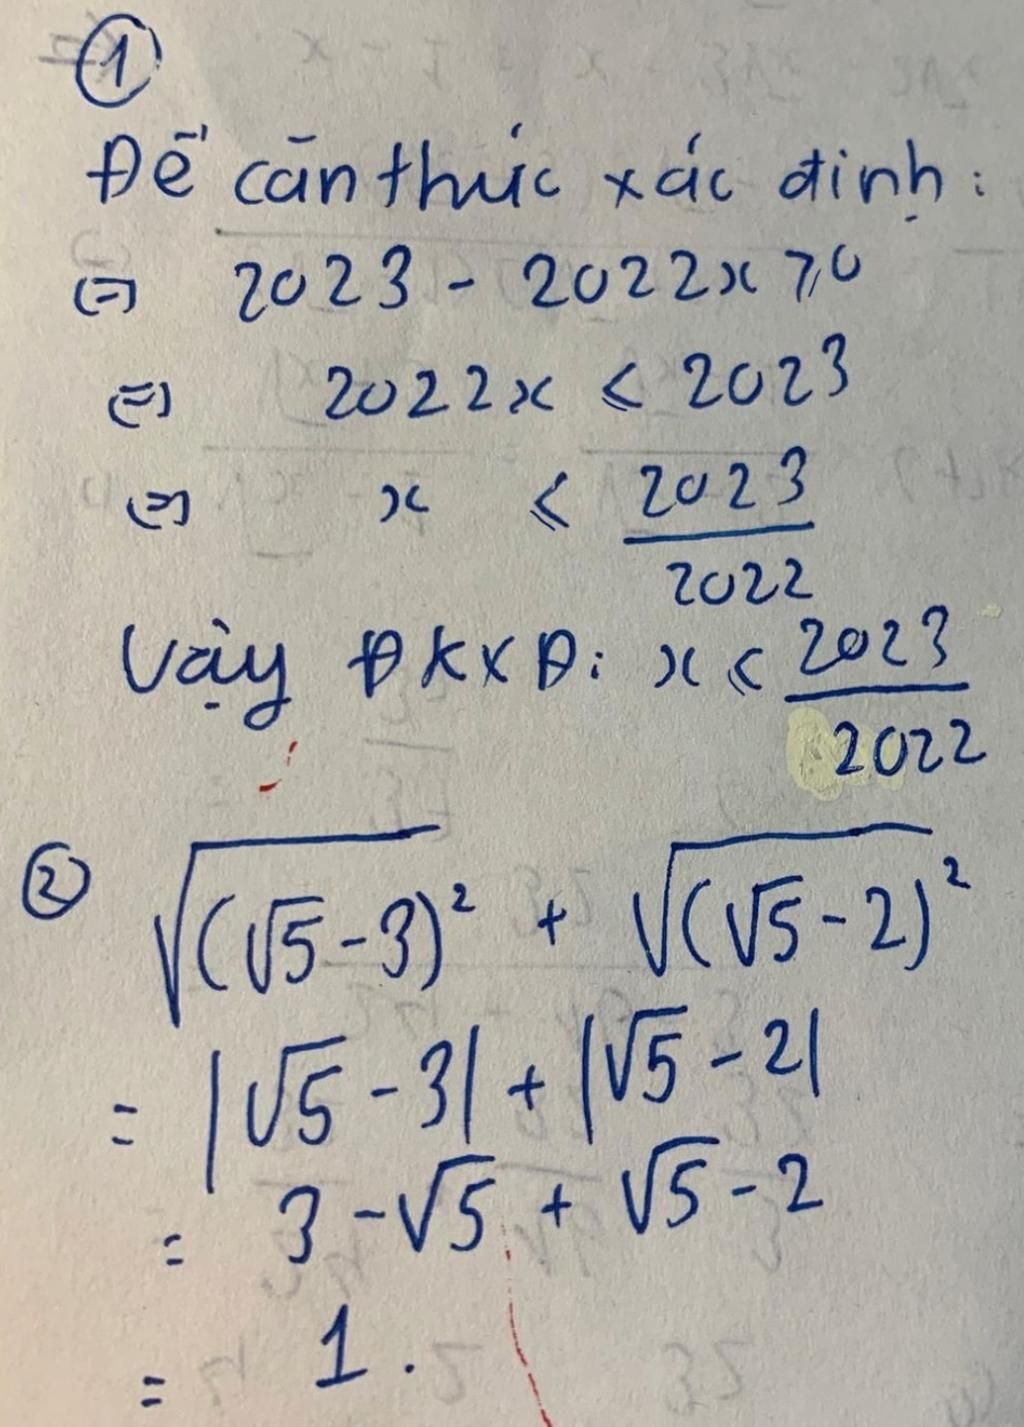 ①
Để căn thức xác định:
⇔ 2023 - 2022x ⩾ 0
⇔ 2022x ⩽ 2023
⇔ x ⩽ 2023/2022
Vậy ĐKXĐ: x ⩽ 2023/2022
② √(√5-3)² + √(√5-2)²
= |√5-3| + |√5-2|
= 3-√5 + √5-2
= 1.